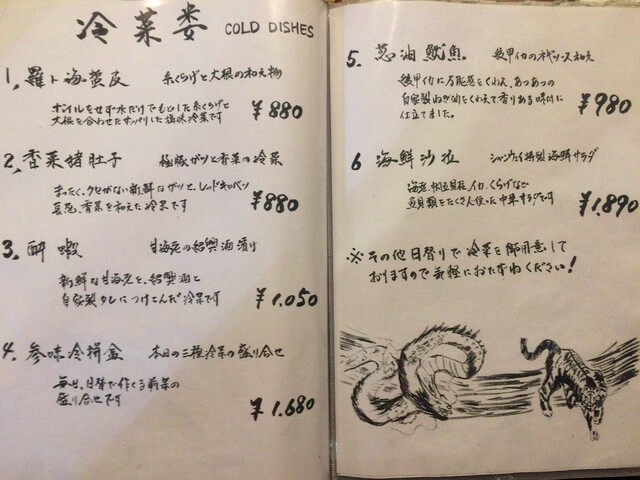 冷菜類 COLD DISHES
1. 羅卜海蜇皮 糸くらげと大根の和え物
ボイルをせず水だけでもどした糸くらげと
大根を合わせたサッパリした塩味冷菜です ¥880
2. 香菜猪肚子 極豚ガツと香菜の冷菜
まったくクセがない新鮮なガツと、レッドキャベツ
長葱、香菜を和えた冷菜です ¥880
3. 酔蝦 甘海老の紹興酒漬け
新鮮な甘海老を、紹興酒と
自家製タレにつけこんだ冷菜です ¥1,050
4. 参味冷拼盆 本日の三種冷菜の盛り合せ
毎日、日替で作てる前菜の
盛り合せです ¥1,680
5. 葱油魷魚 紋甲イカのネギソース和え
紋甲イカに万能葱をくわえ、あつあつの
自家製ねぎ油をくわえて香りある味付に
仕立てました。 ¥980
6 海鮮沙拉 シャンウェイ特製海鮮サラダ
海老、帆立貝柱、イカ、くらげなど
魚貝類をたくさん使った中華サラダです ¥1,890
※その他日替りで冷菜を御用意して
おりますので気軽におたずねください!